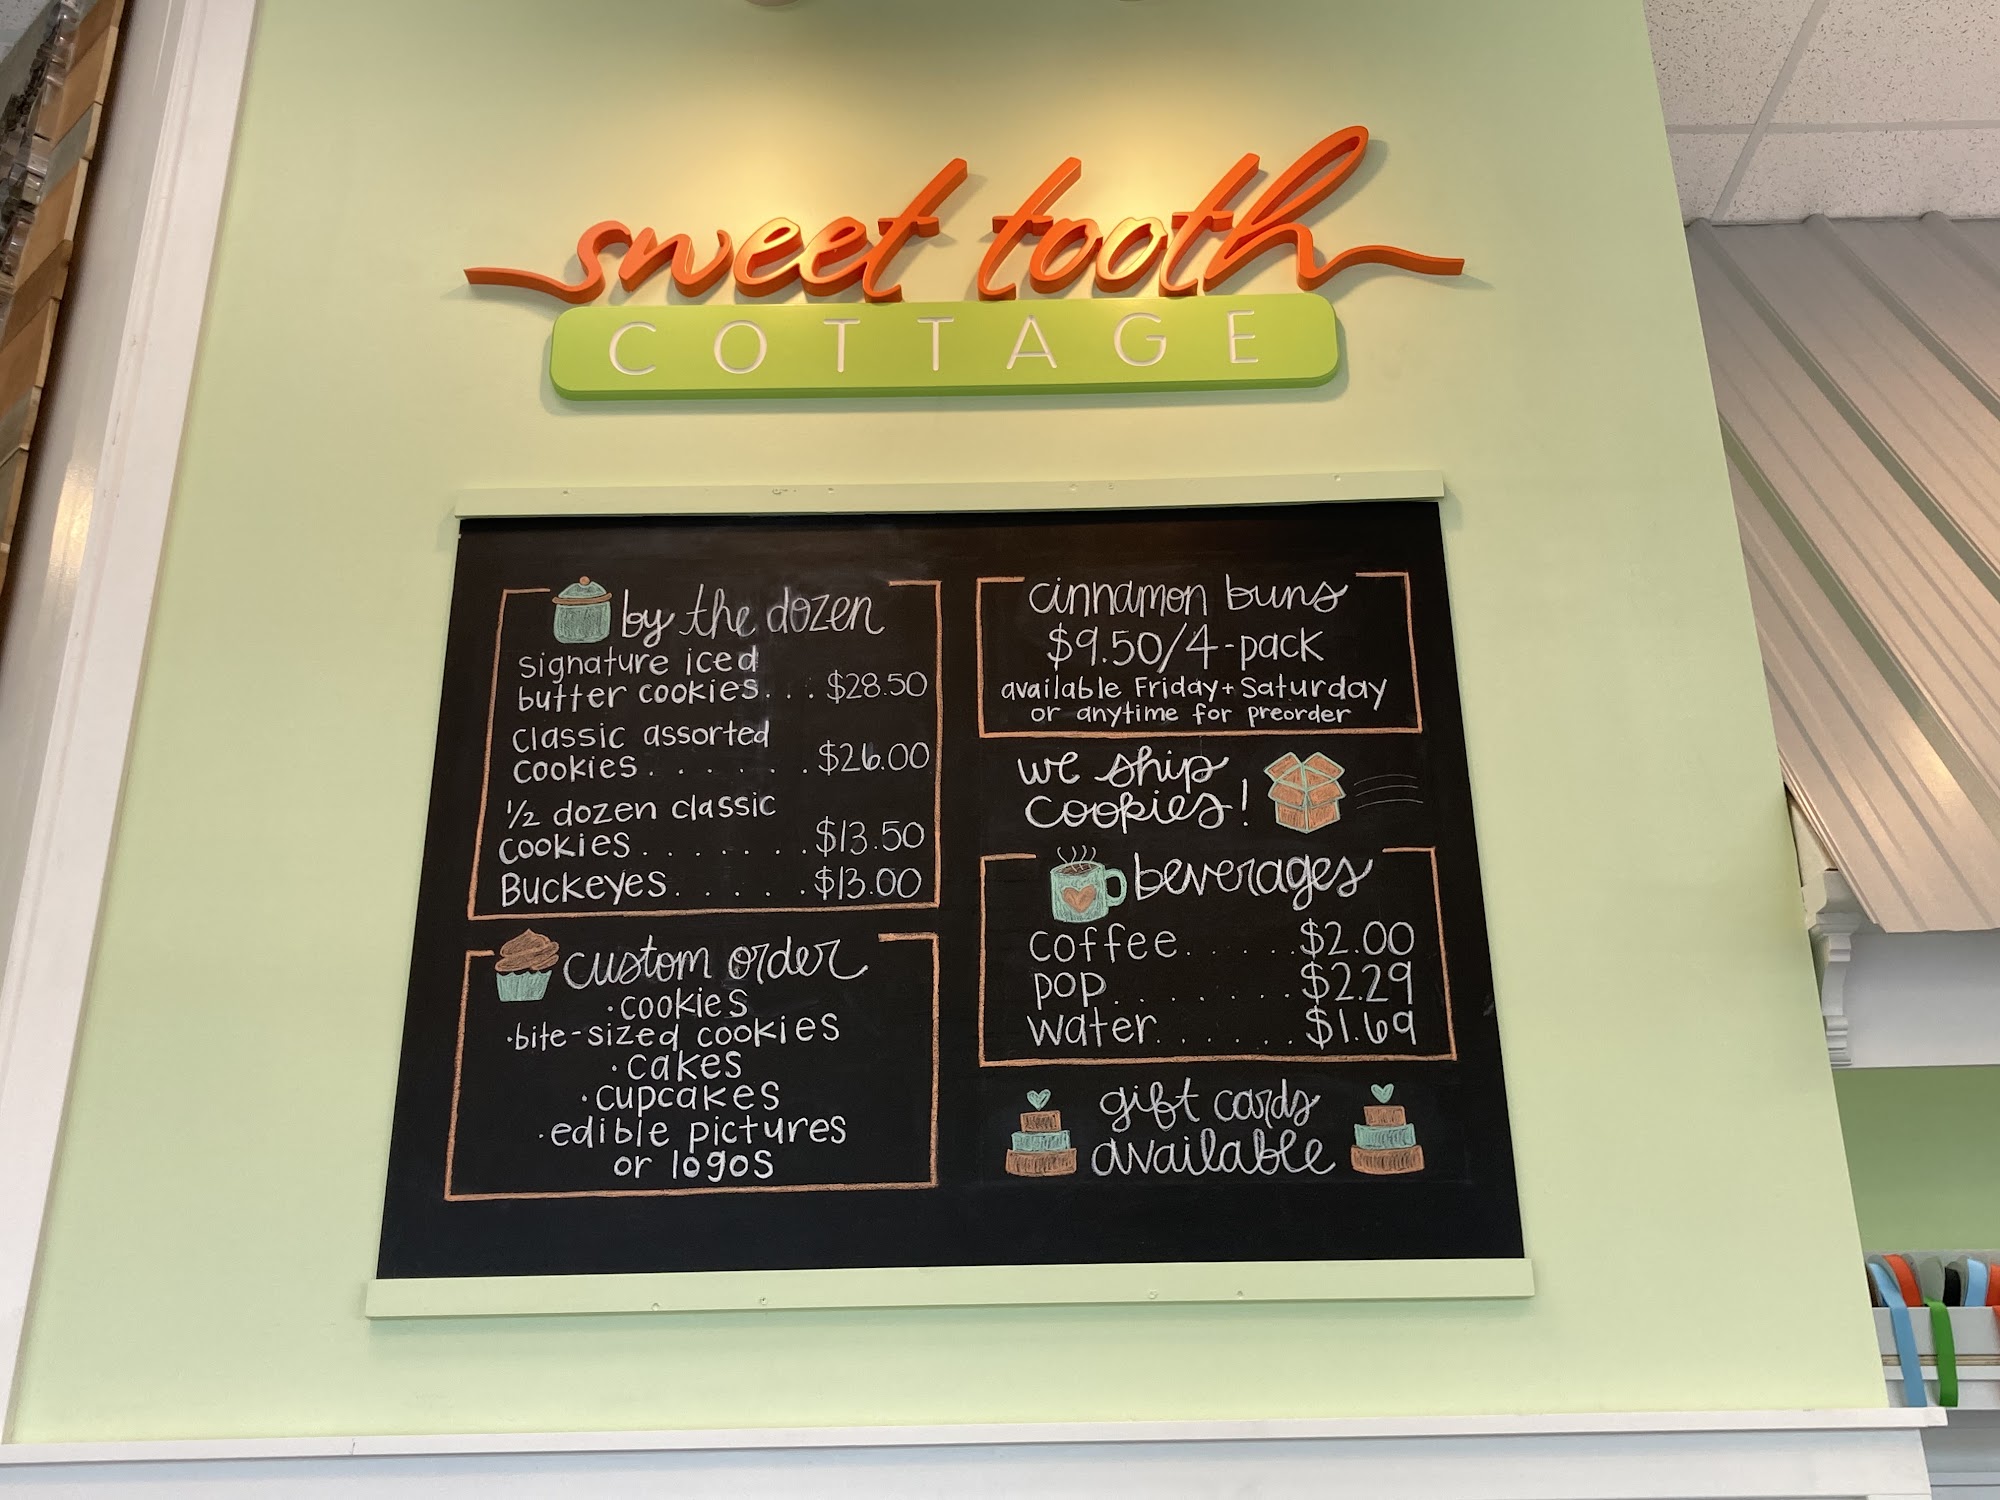 sweet tooth
COTTAGE
by the dozen
signature iced
butter cookies. . . $28.50
classic assorted
cookies. . . . . . . $26.00
1/2 dozen classic
cookies. . . . . . . $13.50
Buckeyes. . . . . . $13.00
custom order
• cookies
• bite-sized cookies
• cakes
• cupcakes
• edible pictures
or logos
cinnamon buns
$9.50/4-pack
available Friday + Saturday
or anytime for preorder
we ship
cookies!
beverages
coffee. . . . . . $2.00
pop. . . . . . . . $2.29
water. . . . . . . $1.69
gift cards
available